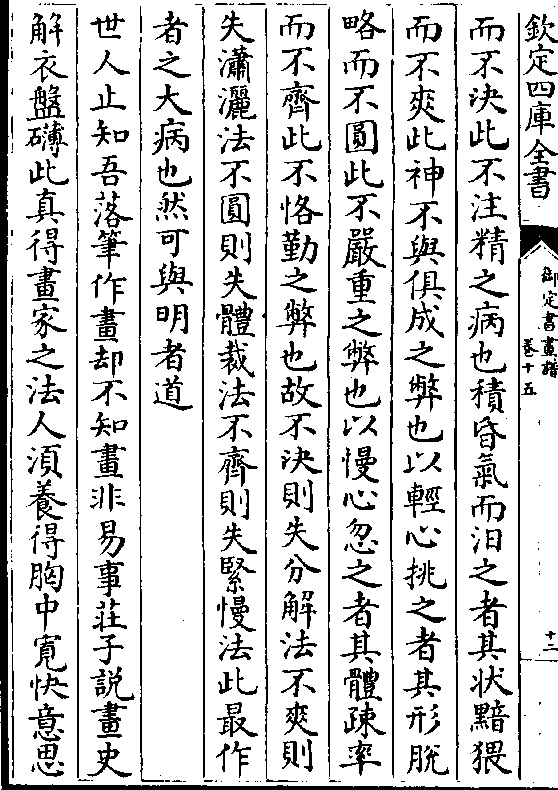 欽定四庫全書
御定書畫譜
卷十五
十三
而不決此不注精之病也積昏氣而汨之者其状黯猥
而不爽此神不與俱成之弊也以輕心挑之者其形脫
略而不圓此不嚴重之弊也以慢心忽之者其體疎率
而不齊此不恪勤之弊也故不決則失分解法不爽則
失瀟灑法不圓則失體裁法不齊則失緊慢法此最作
者之大病也然可與明者道
世人止知吾落筆作畫却不知畫非易事莊子說畫史
解衣盤礴此真得畫家之法人須養得胸中寛快意思